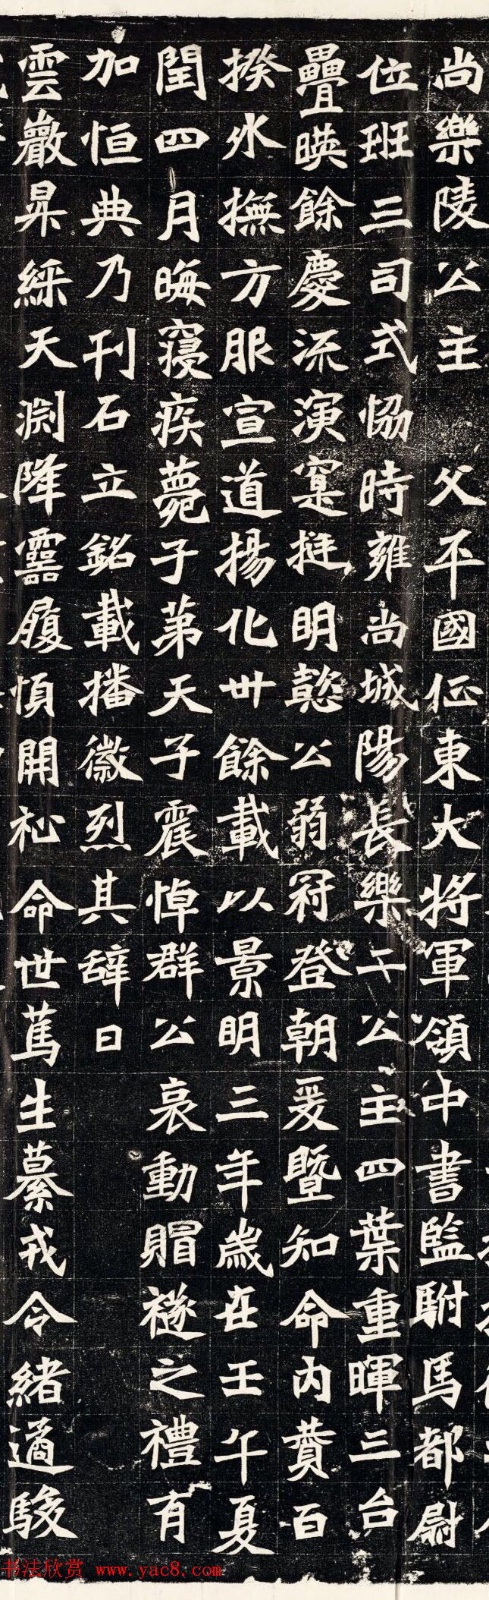 尚樂陵公主　父平國征東大將軍領中書監駙馬都尉
位班三司式協時雍尚城陽長樂二公主四葉重暉三台
疊暎餘慶流演寔挺明懿公弱冠登朝爰暨知命內贊百
揆外撫方服宣道揚化卅餘載以景明三年歲在壬午夏
閏四月晦寢疾薨于第天子震悼群公　哀動賵襚之禮有
加恒典乃刊石立銘載播徽烈其辭曰
雲巖昇綵天淵降靈履順開祉命世篤生纂戎令緒遹駿
书法欣赏 www.yac8.com